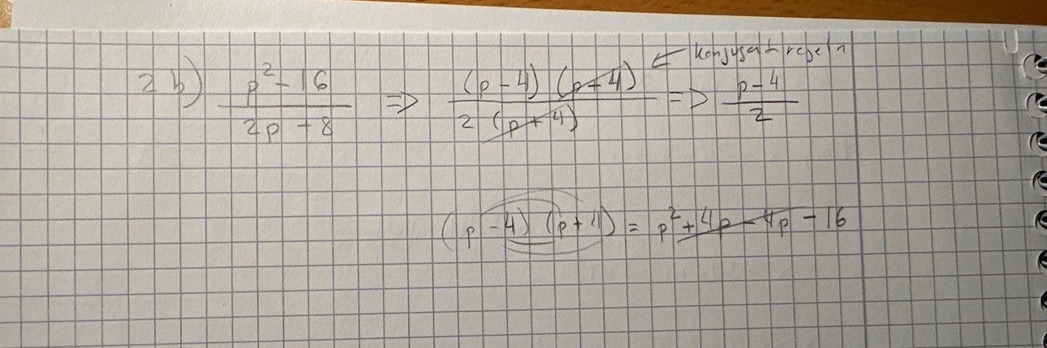 2 b) (p² - 16)/(2p + 8) => ((p - 4) (p + 4))/(2 (p + 4)) <= konjugatregeln => (p - 4)/2
(p - 4) (p + 4) = p² + 4p - 4p - 16